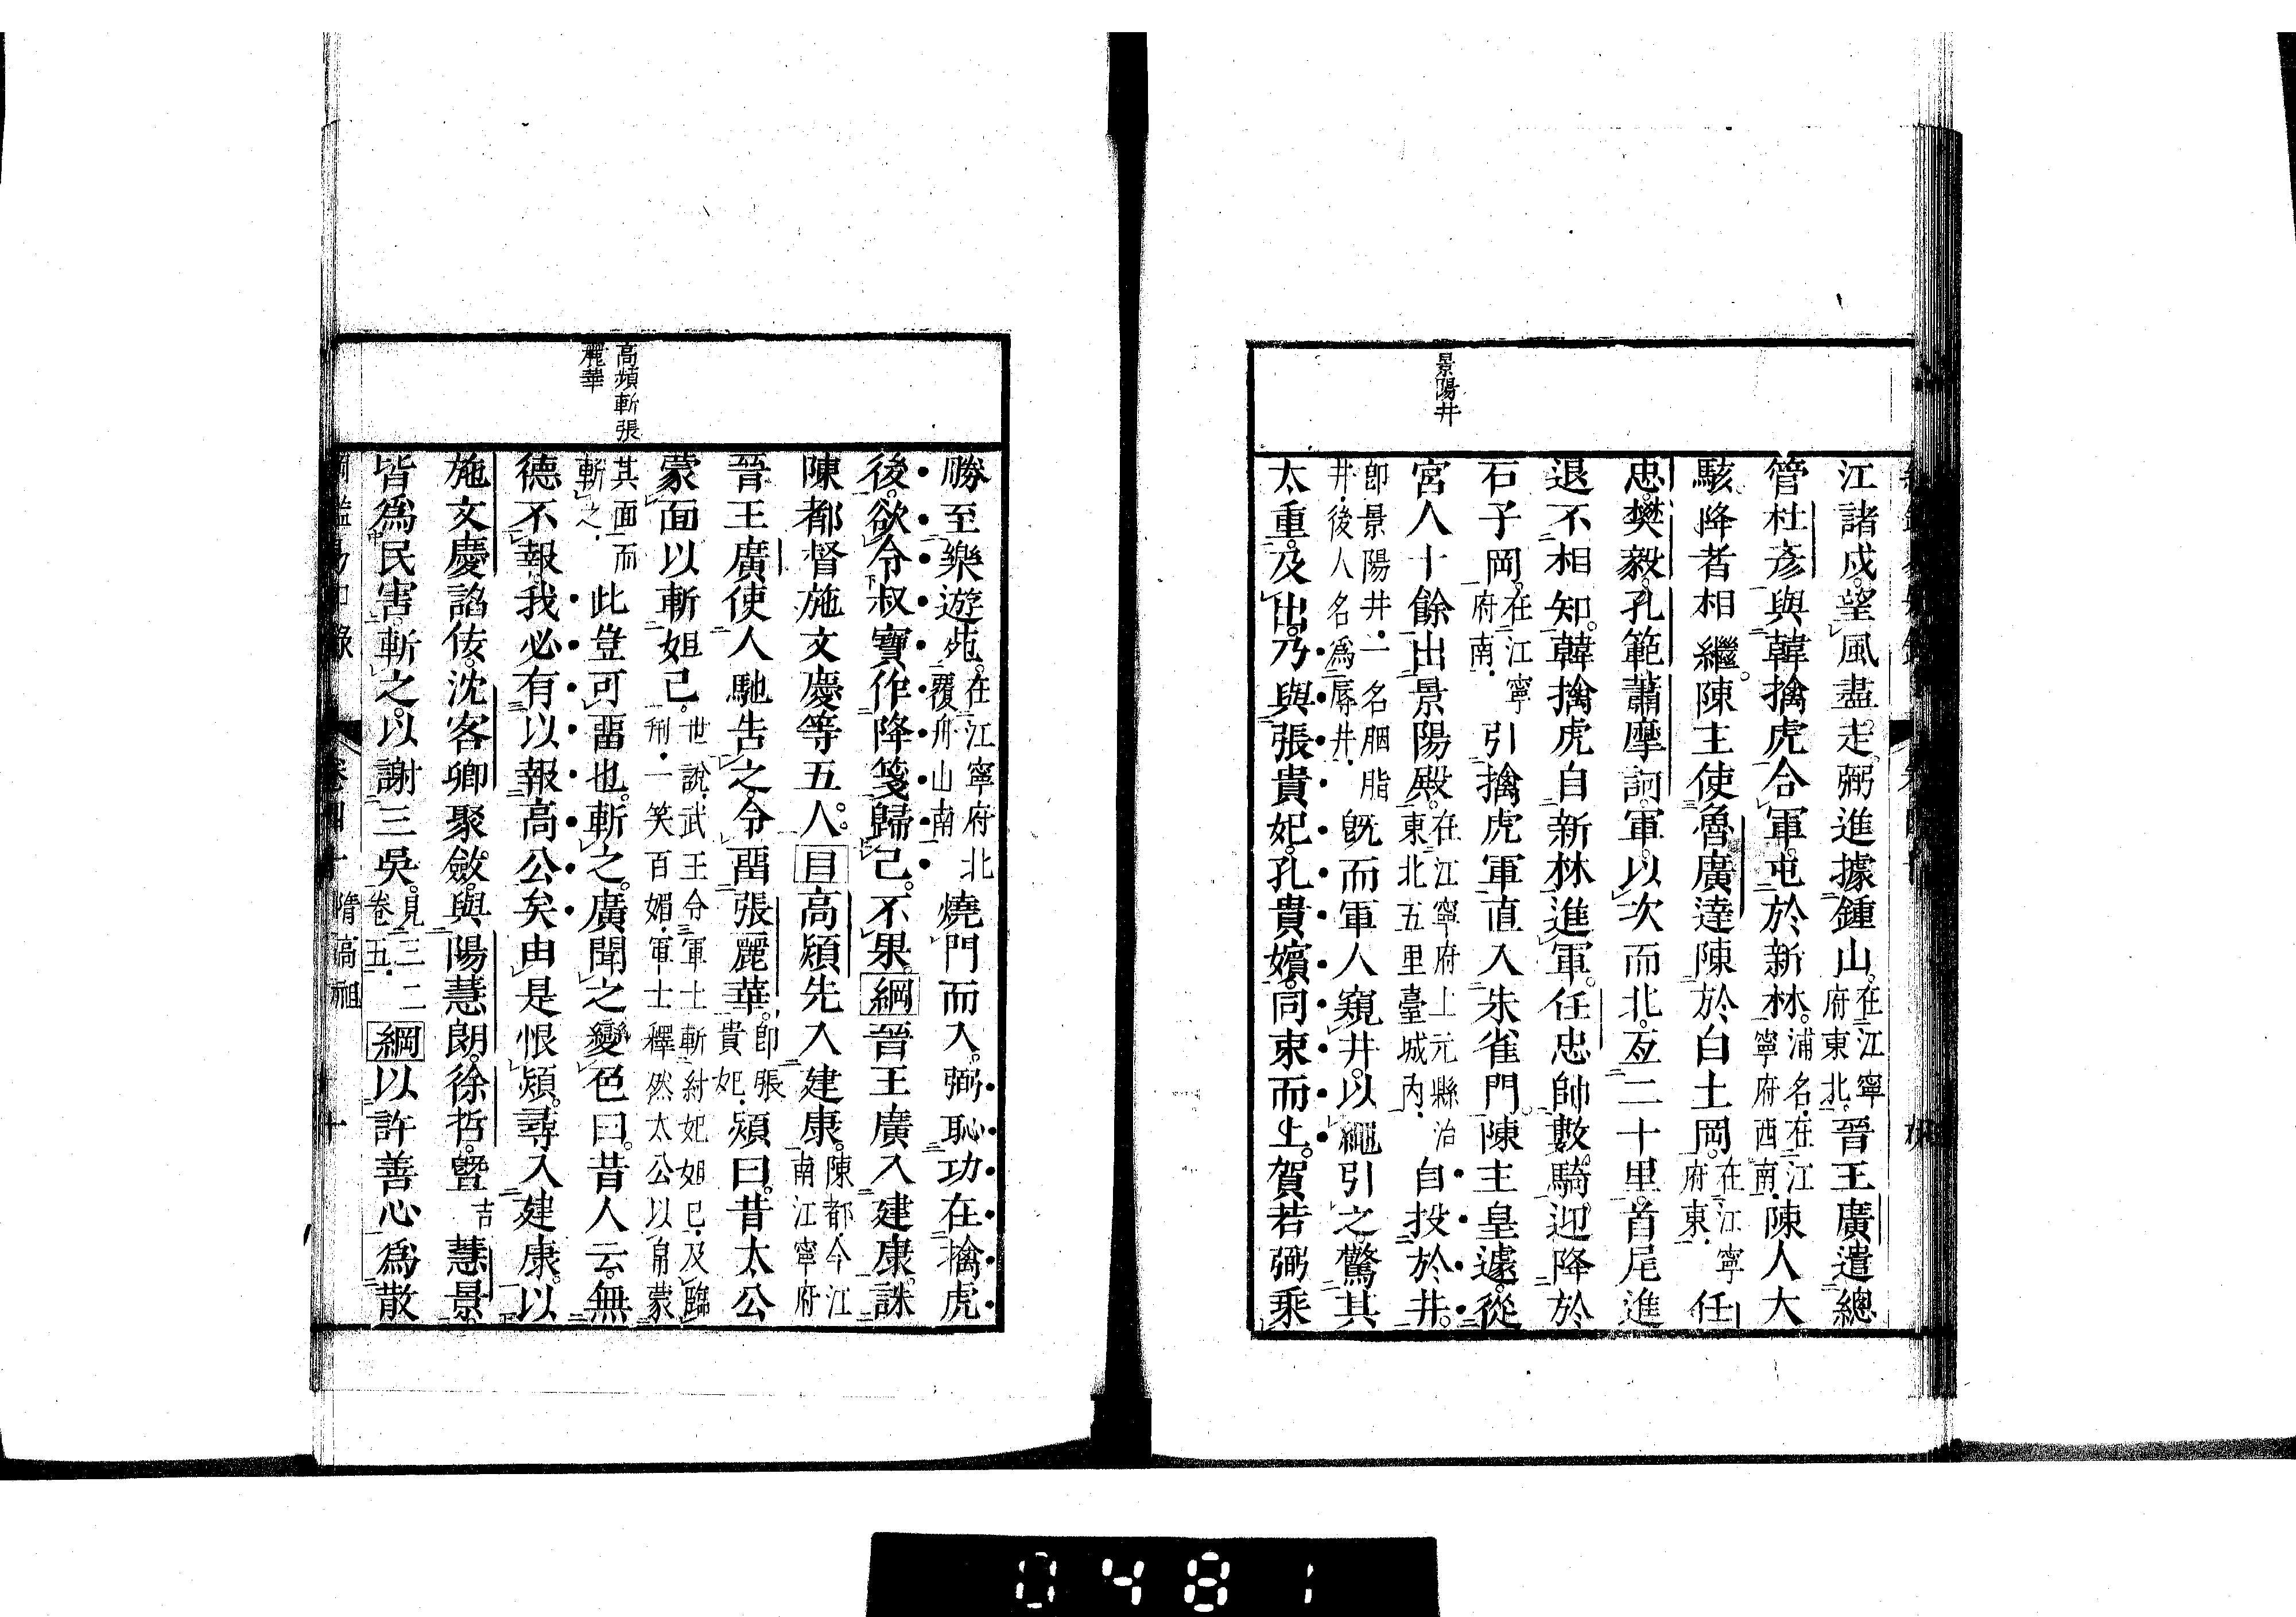 景陽井
江諸戍。望風盡走。弼進據鍾山。在江寧府東北。晉王廣遣總
管杜彥。與韓擒虎合軍。屯於新林。浦名。在江寧府西南。陳人大
駭。降者相繼。陳主使魯廣達陳於白土岡。在江寧府東。任
忠。樊毅。孔範。蕭摩訶。軍以次而北。亙二十里。首尾進
退不相知。韓擒虎自新林進軍。任忠帥數騎迎降於
石子岡。在江寧府南。引擒虎軍直入朱雀門。陳主皇遽。從
宮人十餘出景陽殿。在江寧府上元縣治東北五里臺城內。自投於井。
卽景陽井。一名胭脂井。後人名爲辱井。旣而軍人窺井。以繩引之。驚其
太重。及出。乃與張貴妃。孔貴嬪。同束而上。賀若弼乘
高熲斬張
麗華
勝至樂遊苑。在江寧府北覆舟山南燒門而入。弼恥功在擒虎
後。欲令叔寶作降箋歸己。不果。綱晉王廣入建康。誅
陳都督施文慶等五人。目高熲先入建康。陳都。今江南江寧府
晉王廣使人馳告之。令畱張麗華。卽張貴妃。熲曰。昔太公
蒙面以斬妲己。世說。武王令軍士斬紂妃妲己。及臨刑。一笑百媚。軍士釋然太公以帛蒙
其面而斬之。此豈可畱也。斬之。廣聞之變色曰。昔人云。無
德不報。我必有以報高公矣。由是恨熲。尋入建康。以
施文慶諂佞。沈客卿聚斂。與陽慧朗。徐哲。曁吉慧景。
皆爲民害。斬之。以謝三吳。見三二卷五。綱以許善心爲散
卷四十 隋高祖 十